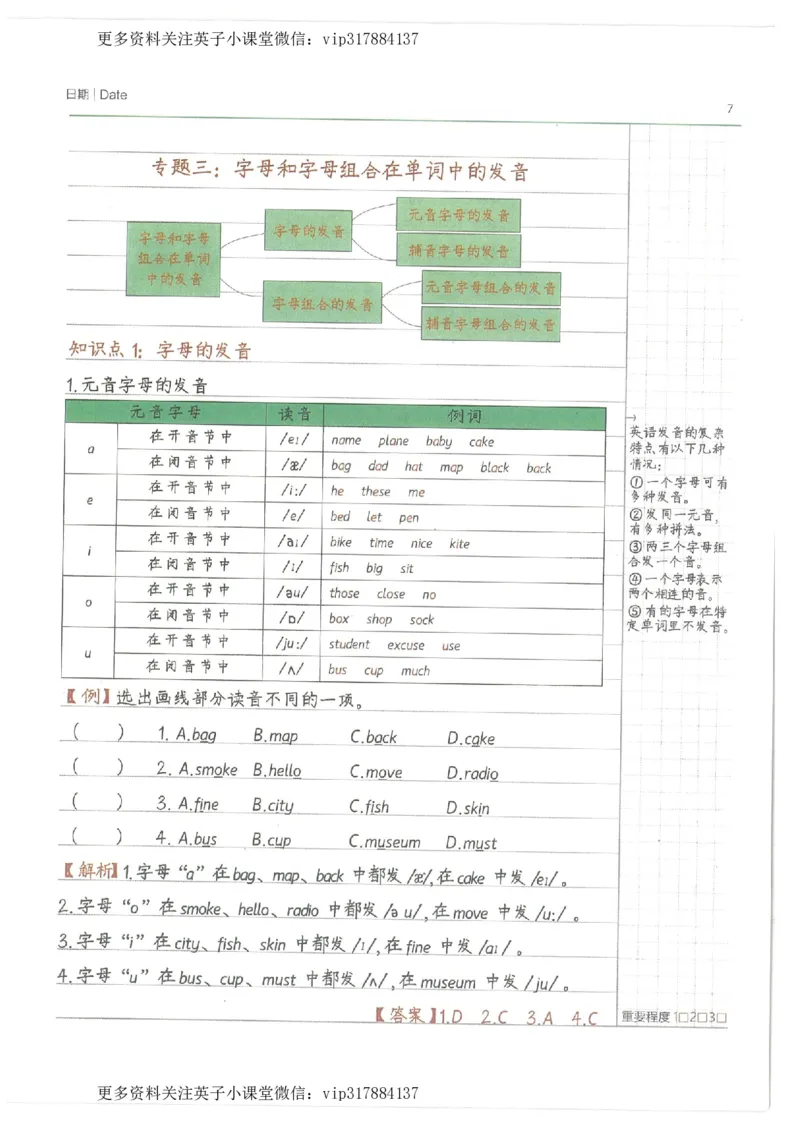 更多资料关注英子小课堂微信：vip317884137
日期 | Date
7
专题三：字母和字母组合在单词中的发音
字母和字母
组合在单词
中的发音
字母的发音
元音字母的发音
辅音字母的发音
字母组合的发音
元音字母组合的发音
辅音字母组合的发音
知识点1：字母的发音
1.元音字母的发音
元音字母 读音 例词
a 在开音节中 /eɪ/ name plane baby cake
在闭音节中 /æ/ bag dad hat map black back
e 在开音节中 /i:/ he these me
在闭音节中 /e/ bed let pen
i 在开音节中 /aɪ/ bike time nice kite
在闭音节中 /ɪ/ fish big sit
o 在开音节中 /əu/ those close no
在闭音节中 /ɒ/ box shop sock
u 在开音节中 /ju:/ student excuse use
在闭音节中 /ʌ/ bus cup much
→
英语发音的复杂
特点有以下几种
情况：
①一个字母可有
多种发音。
②发同一元音，
有多种拼法。
③两三个字母组
合发一个音。
④一个字母表示
两个相连的音。
⑤有的字母在特
定单词里不发音。
【例】选出画线部分读音不同的一项。
（ ） 1. A.bag B.map C.back D.cake
（ ） 2. A.smoke B.hello C.move D.radio
（ ） 3. A.fine B.city C.fish D.skin
（ ） 4. A.bus B.cup C.museum D.must
【解析】1.字母“a”在bag、map、back 中都发/æ/,在cake 中发/eɪ/。
2.字母“o”在smoke、hello、radio 中都发/ə u/,在move 中发/u:/ 。
3.字母“i”在city、fish、skin 中都发/ɪ/,在fine 中发/aɪ/ 。
4.字母“u”在bus、cup、must 中都发/ʌ/,在museum 中发/ju/ 。
【答案】1.D 2.C 3.A 4.C
重要程度 1□2□3□
更多资料关注英子小课堂微信：vip317884137